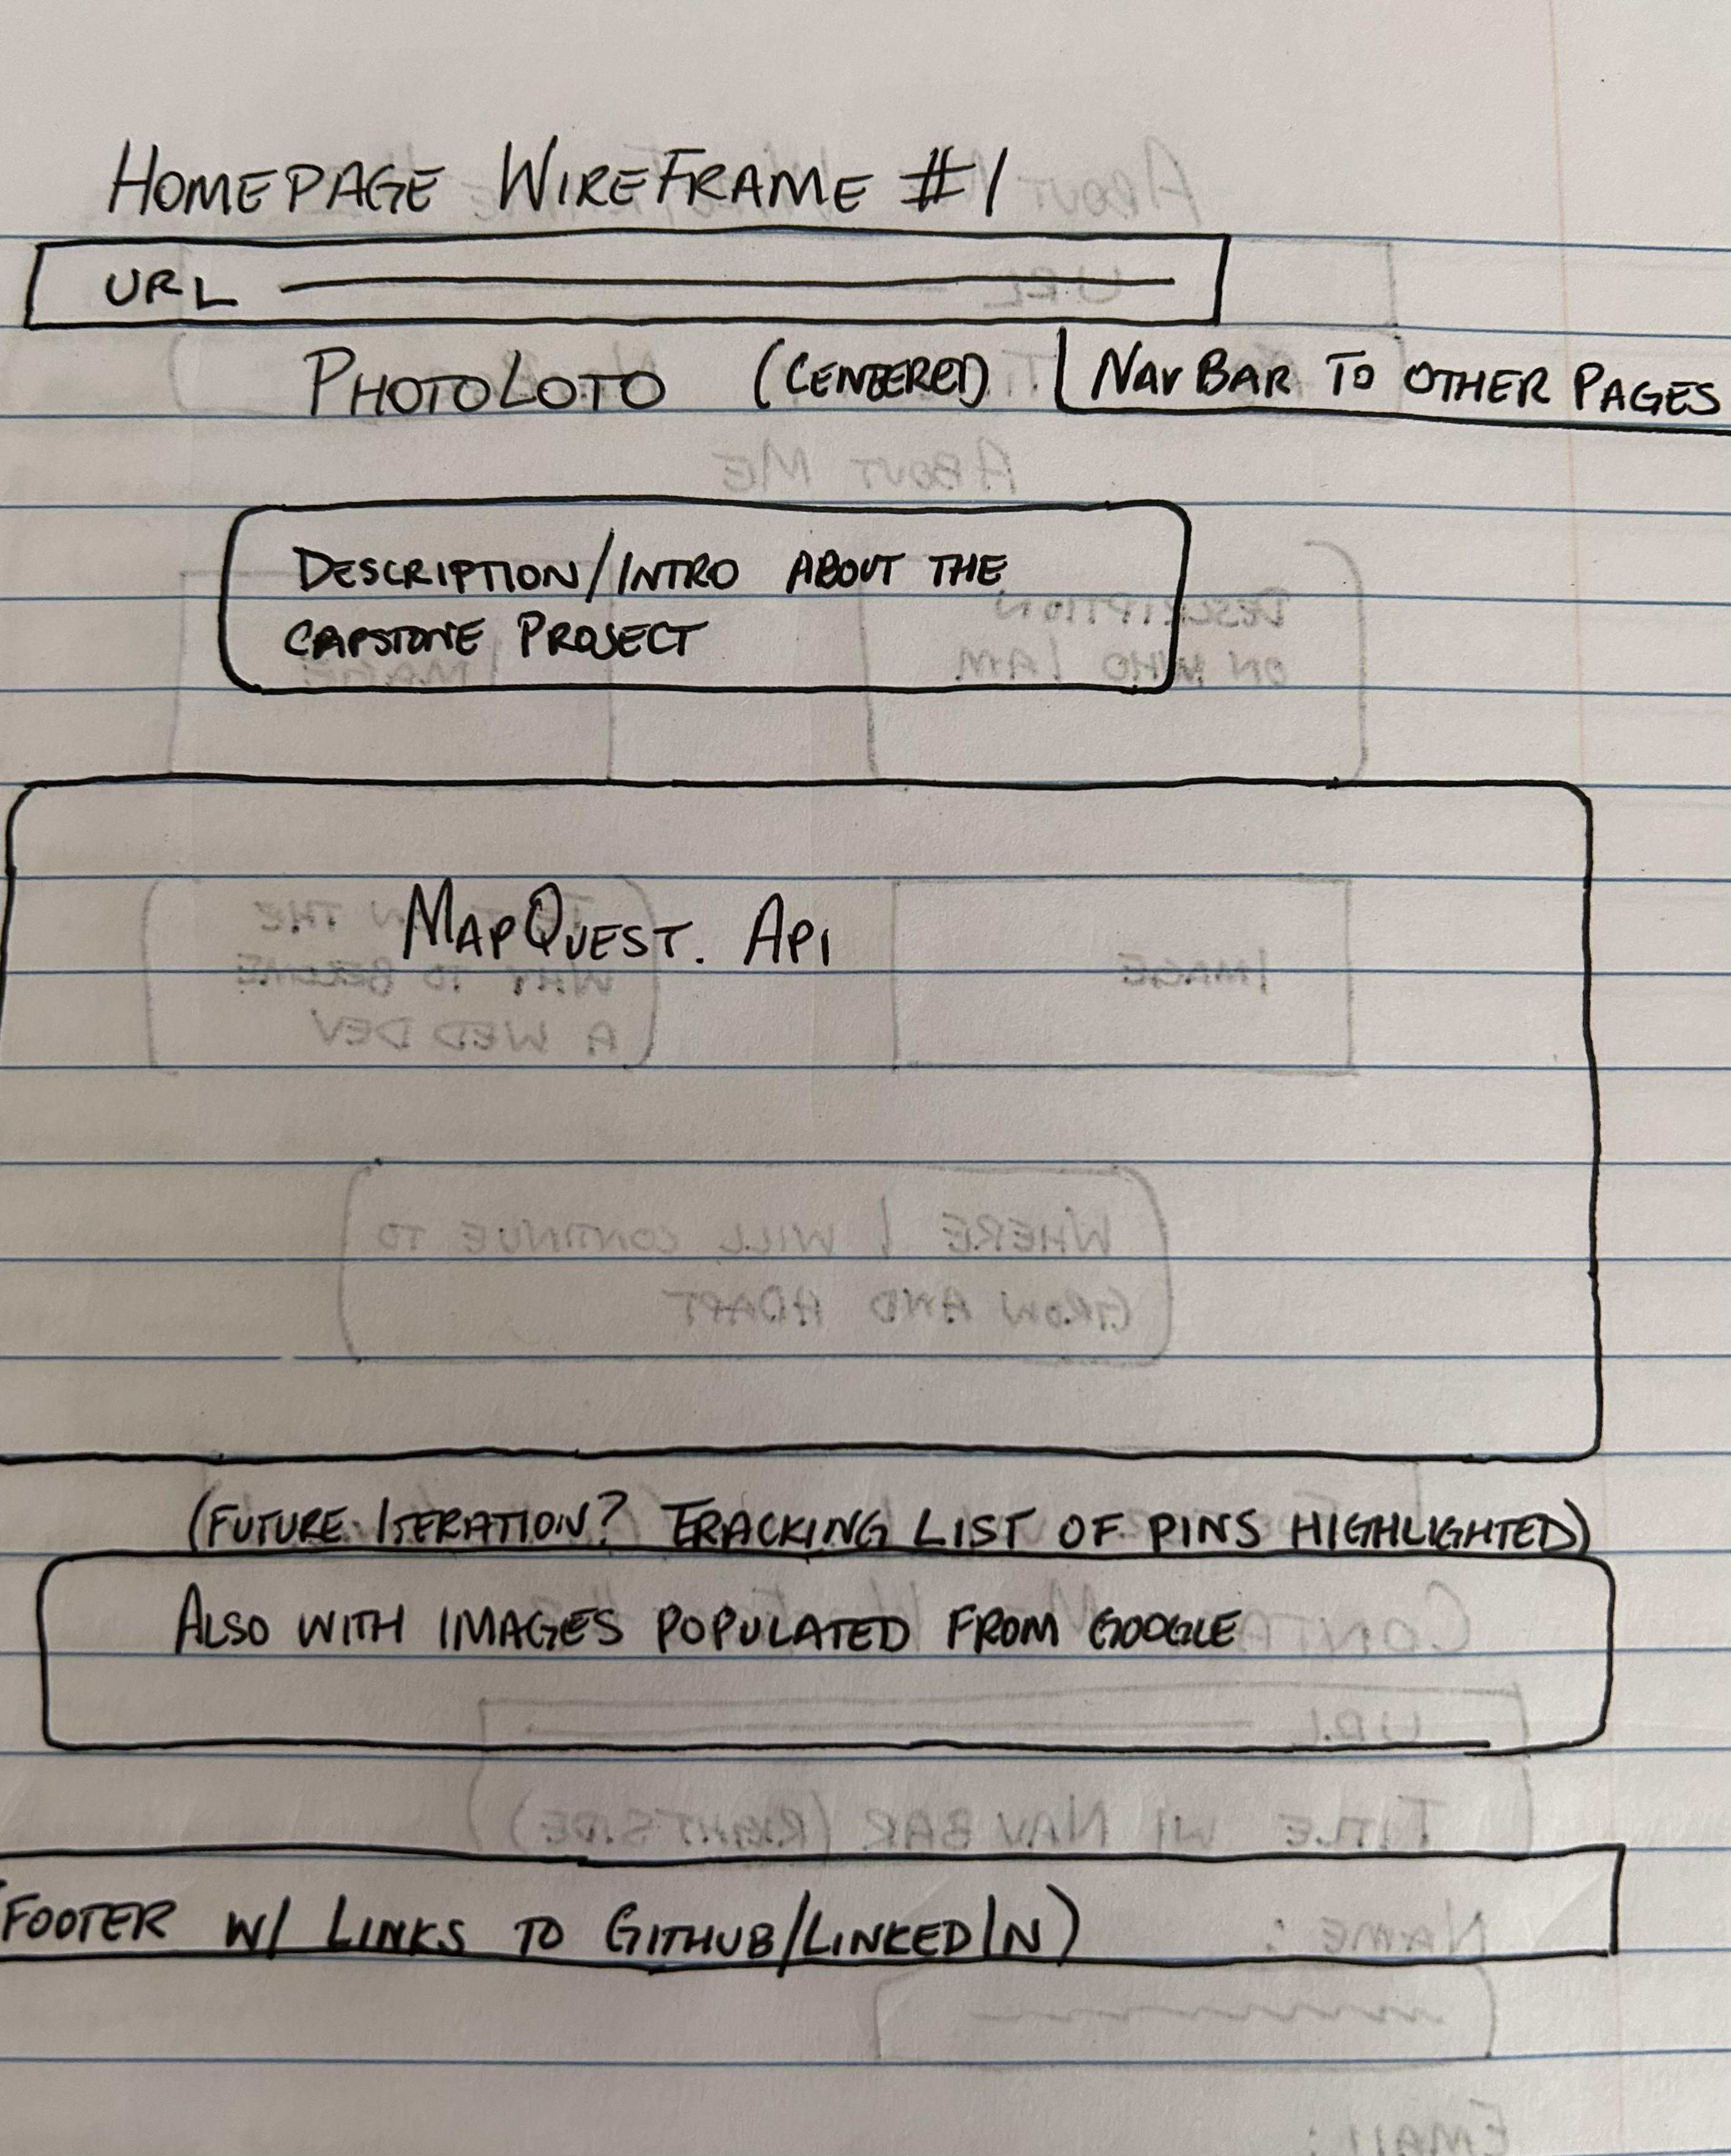 HOMEPAGE WIREFRAME #1
URL
PHOTOLOTO (CENTERED) NAV BAR TO OTHER PAGES
DESCRIPTION/INTRO ABOUT THE
CAPSTONE PROJECT
MAPQUEST. API
(FUTURE ITERATION? TRACKING LIST OF PINS HIGHLIGHTED)
ALSO WITH IMAGES POPULATED FROM GOOGLE
FOOTER W/ LINKS TO GITHUB/LINKEDIN)